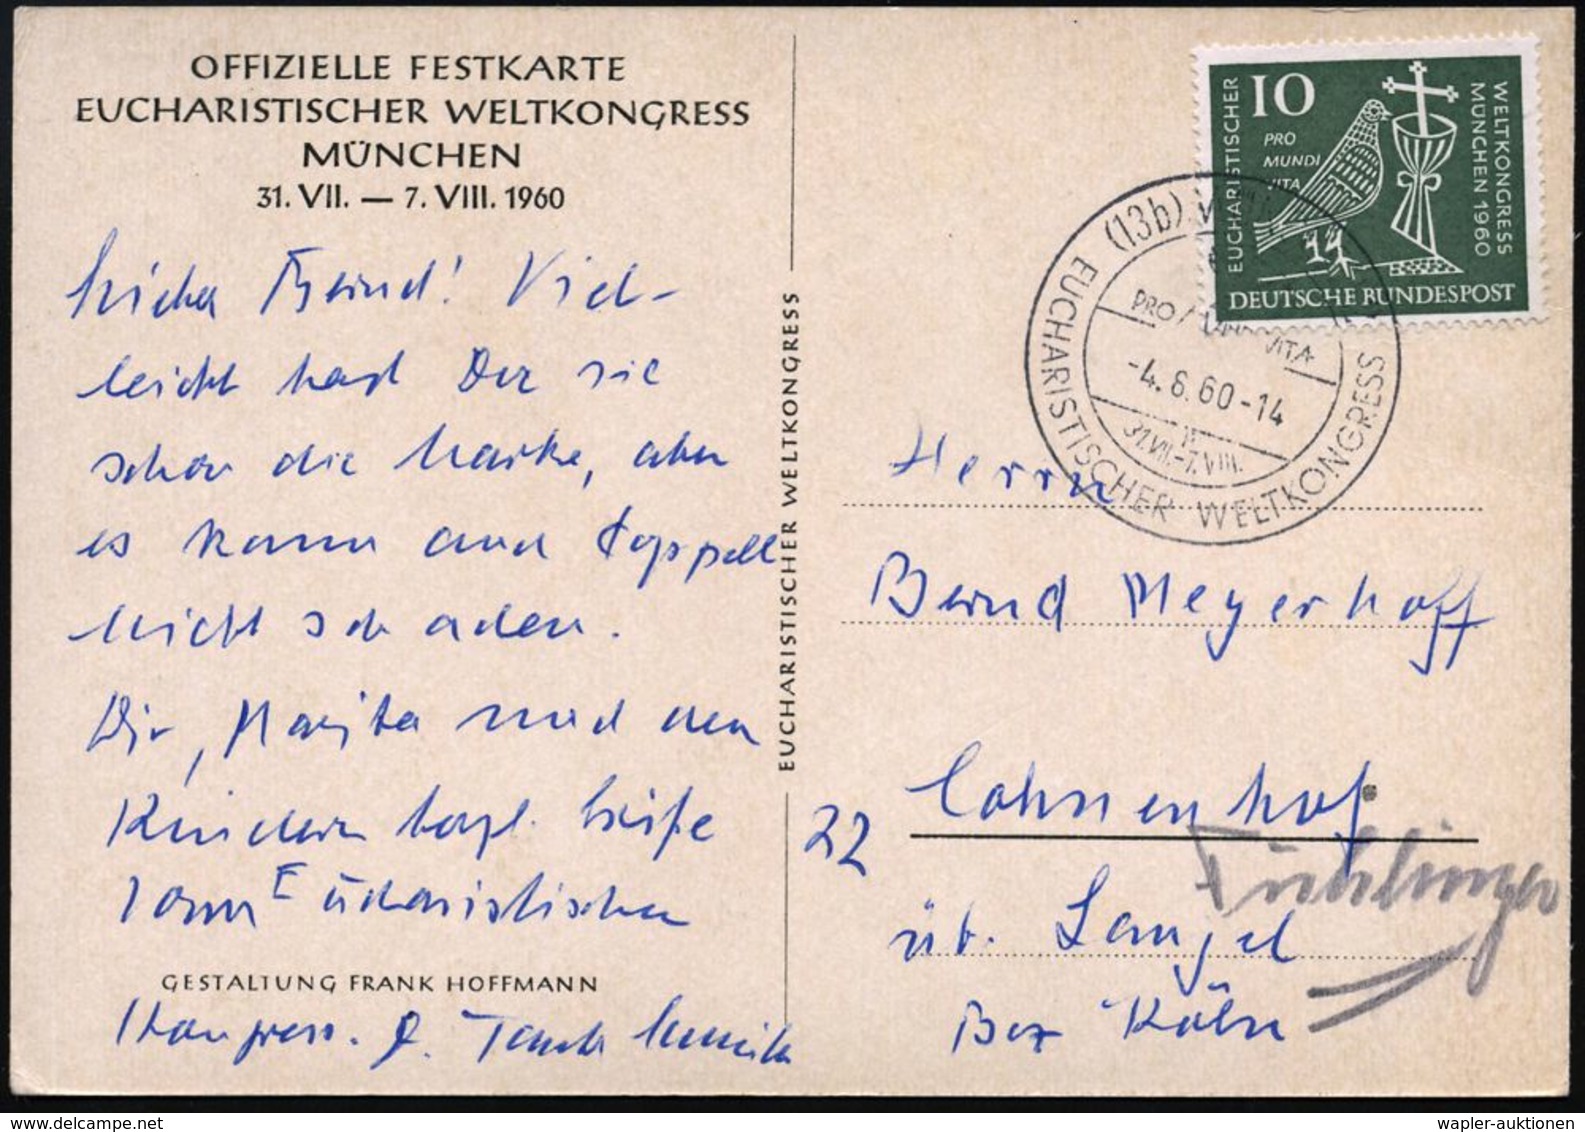 OFFIZIELLE FESTKARTE
EUCHARISTISCHER WELTKONGRESS
MÜNCHEN
31. VII. — 7. VIII. 1960
Lieber Bernd! Viel-
leicht hast Du sie
schon die Marke, aber
es kann auch doppelt
nicht schaden.
Dir, Marita und den
Kindern herzl. Grüße
vom Eucharistischen
GESTALTUNG FRANK HOFFMANN
Kongress.
EUCHARISTISCHER WELTKONGRESS
10
PRO
MUNDI
VITA
EUCHARISTISCHER
WELTKONGRESS
MÜNCHEN 1960
DEUTSCHE BUNDESPOST
(13b)
PRO VITA
-4.8.60-14
31.VII.-7.VIII.
EUCHARISTISCHER WELTKONGRESS
Herrn
Bernd Meyerhoff
22
üb. Langel
Bez Köln
Fühlingen
wapler-auktionen.com